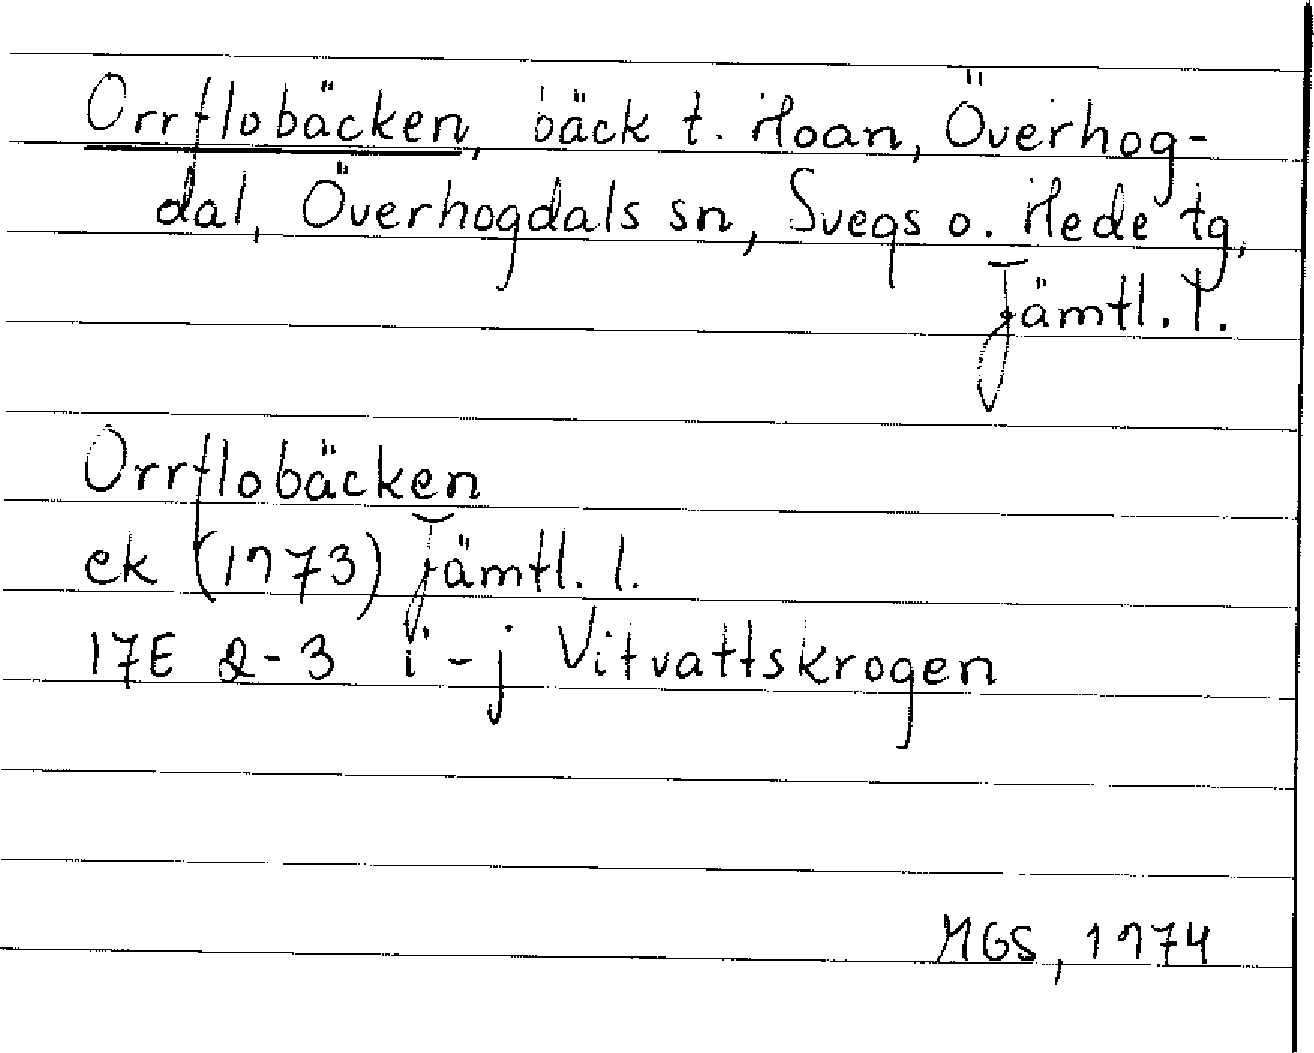 Orrflobäcken, bäck t. Hoan, Överhog-
dal, Överhogdals sn, Svegs o. Hede tg,
Jämtl. l.
Orrflobäcken
ek (1973) Jämtl. l.
17E 2-3 i-j Vitvattskrogen
MGS, 1974